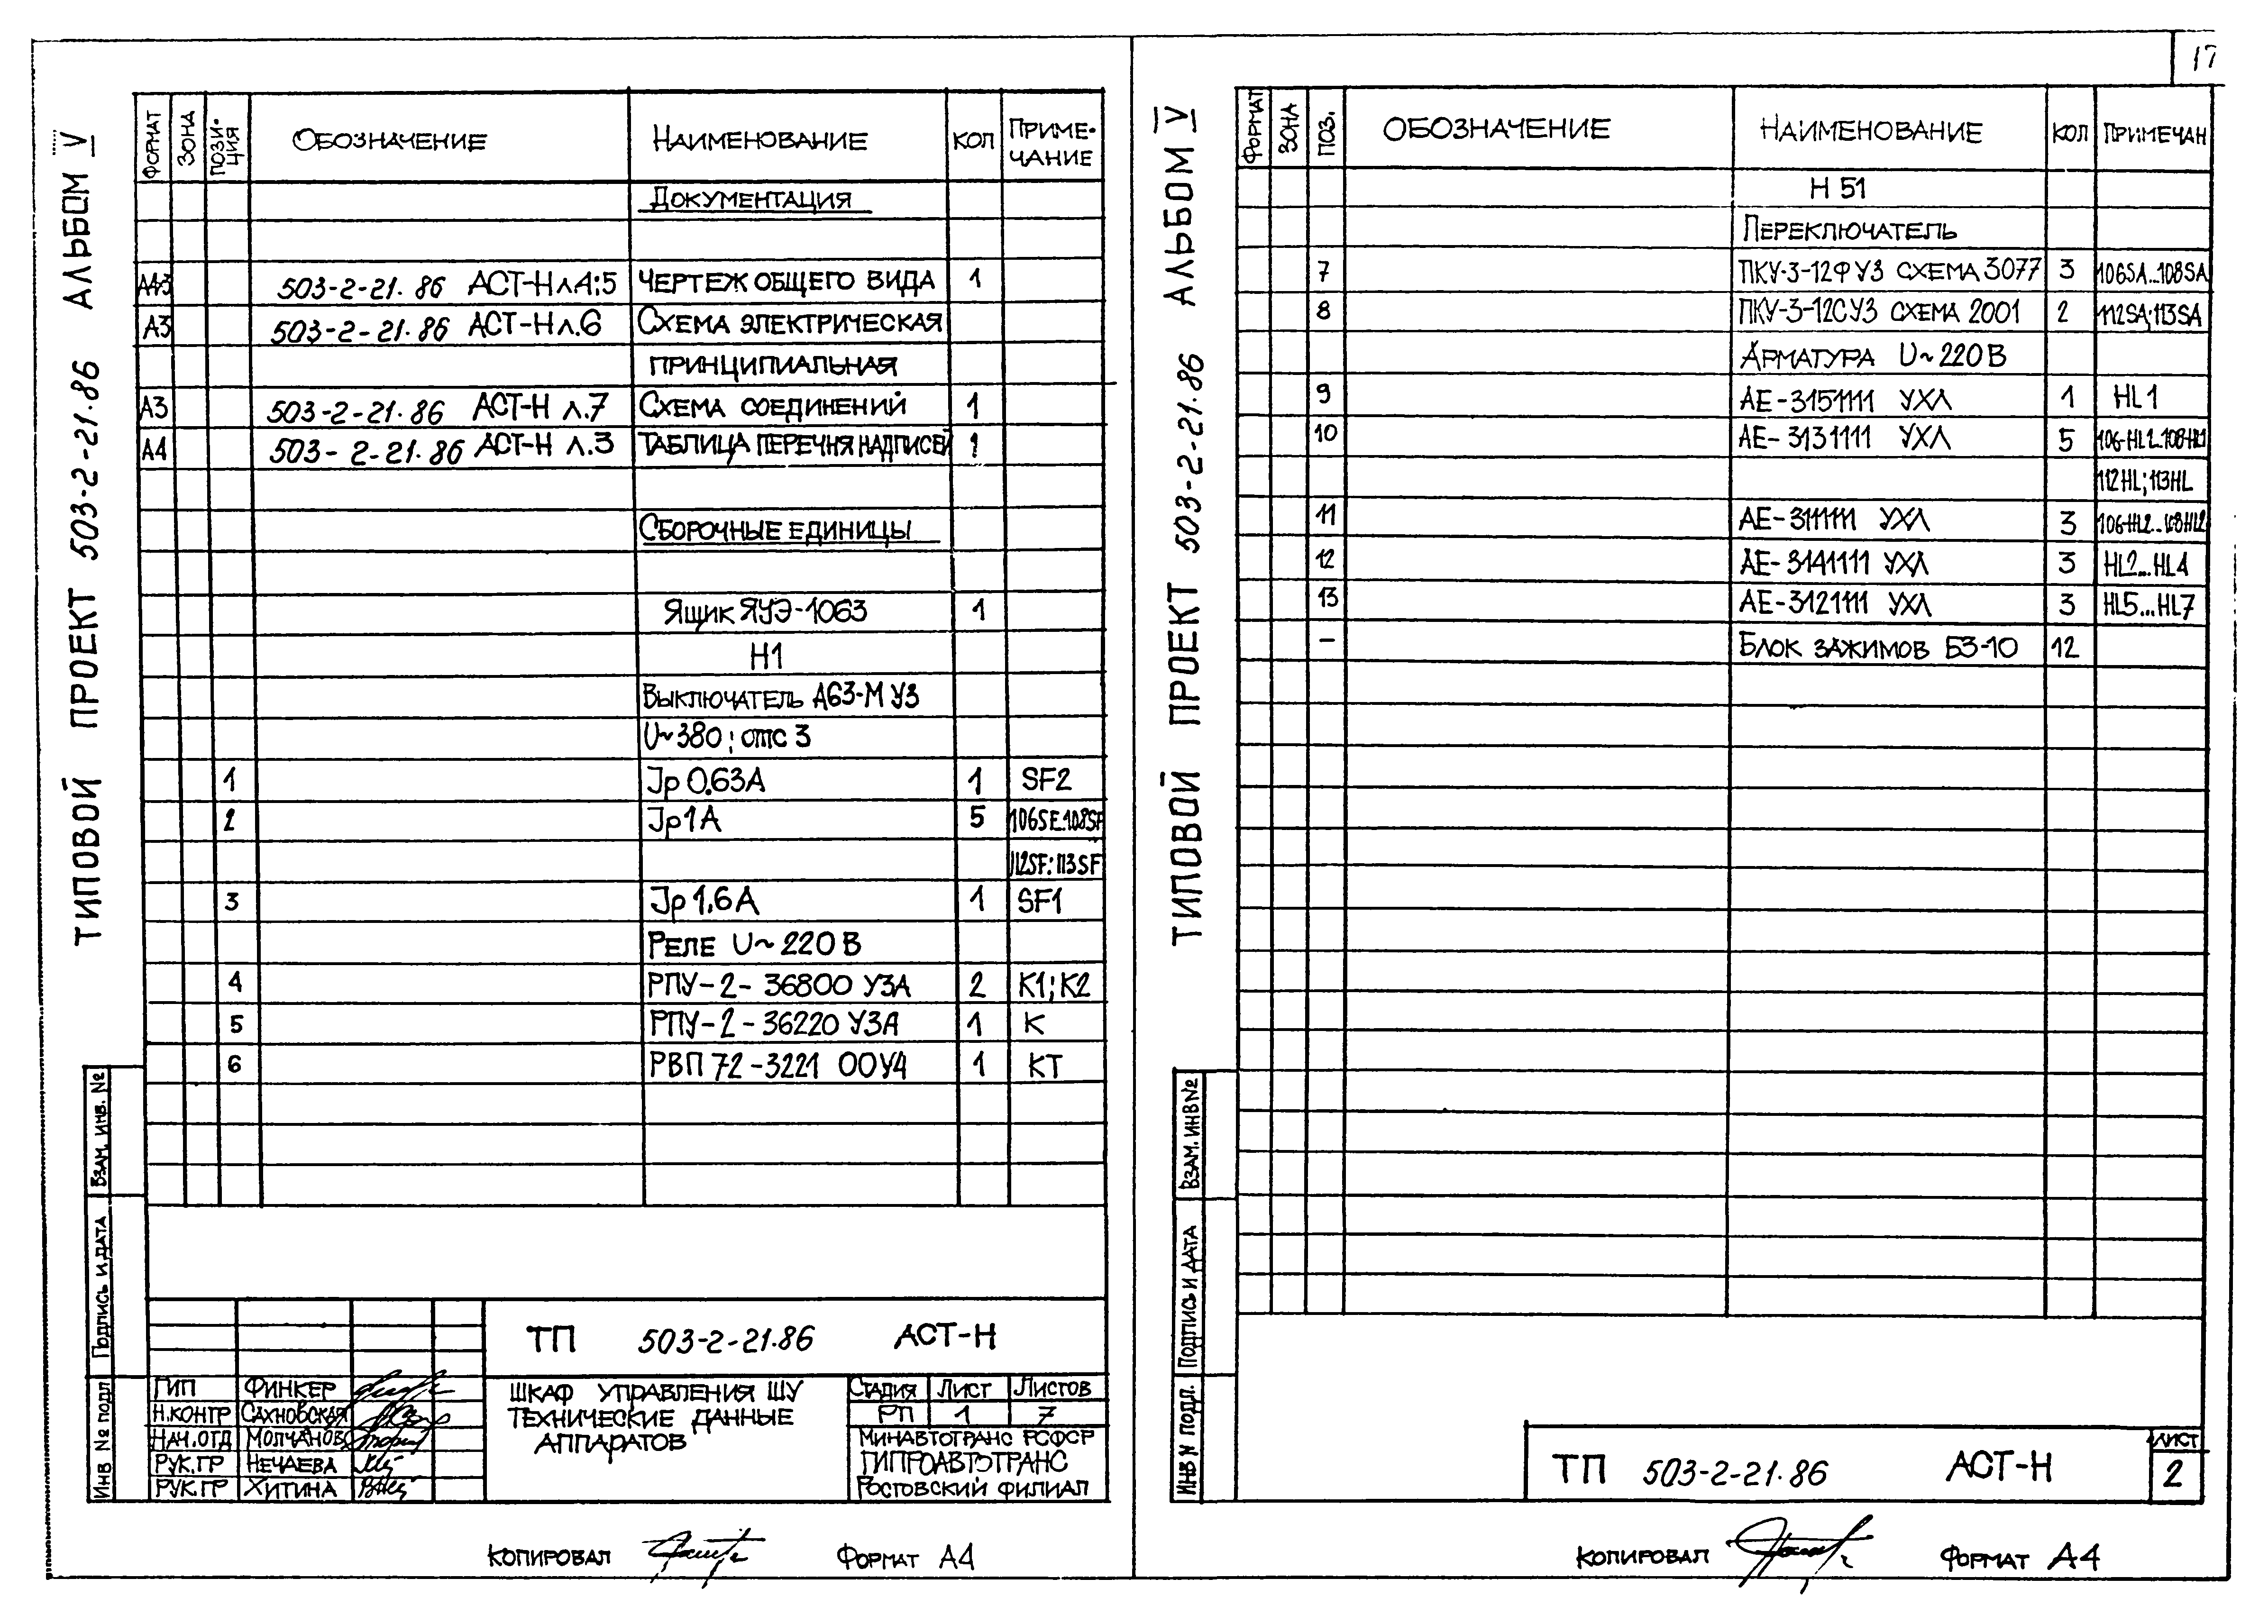 17
ТИПОВОЙ ПРОЕКТ 503-2-21.86 АЛЬБОМ V
ФОРМАТ ЗОНА ПОЗИ-ЦИЯ ОБОЗНАЧЕНИЕ НАИМЕНОВАНИЕ КОЛ ПРИМЕ-ЧАНИЕ
ДОКУМЕНТАЦИЯ
503-2-21.86 АСТ-Н л4;5 ЧЕРТЕЖ ОБЩЕГО ВИДА 1
А3 503-2-21.86 АСТ-Н л.6 СХЕМА ЭЛЕКТРИЧЕСКАЯ
ПРИНЦИПИАЛЬНАЯ
А3 503-2-21.86 АСТ-Н л.7 СХЕМА СОЕДИНЕНИЙ 1
А4 503-2-21.86 АСТ-Н л.3 ТАБЛИЦА ПЕРЕЧНЯ НАДПИСЕЙ 1
СБОРОЧНЫЕ ЕДИНИЦЫ
ЯЩИК ЯУЭ-1063 1
Н1
ВЫКЛЮЧАТЕЛЬ А63-М У3
U~380; отс 3
1 Jp 0.63А 1 SF2
2 Jp 1А 5 106SF...108SF
112SF; 113SF
3 Jp 1,6А 1 SF1
РЕЛЕ U~220В
4 РПУ-2-36800 У3А 2 К1; К2
5 РПУ-2-36220 У3А 1 К
6 РВП 72-3221 00У4 1 КТ
ВЗАМ. ИНВ. №
ПОДПИСЬ И ДАТА
ИНВ № ПОДЛ
ТП 503-2-21.86 АСТ-Н
ГИП ФИНКЕР
Н.КОНТР САХНОВСКАЯ
НАЧ.ОТД МОЛЧАНОВ
РУК.ГР НЕЧАЕВА
РУК.ГР ХИТИНА
ШКАФ УПРАВЛЕНИЯ ШУ
ТЕХНИЧЕСКИЕ ДАННЫЕ
АППАРАТОВ
СТАДИЯ ЛИСТ ЛИСТОВ
РП 1 7
МИНАВТОТРАНС РСФСР
ГИПРОАВТОТРАНС
РОСТОВСКИЙ ФИЛИАЛ
КОПИРОВАЛ ФОРМАТ А4
ТИПОВОЙ ПРОЕКТ 503-2-21.86 АЛЬБОМ V
ФОРМАТ ЗОНА ПОЗ. ОБОЗНАЧЕНИЕ НАИМЕНОВАНИЕ КОЛ ПРИМЕЧАН
Н 51
ПЕРЕКЛЮЧАТЕЛЬ
7 ПКУ-3-12Ф У3 СХЕМА 3077 3 106SA...108SA
8 ПКУ-3-12С У3 СХЕМА 2001 2 112SA; 113SA
АРМАТУРА U~220В
9 АЕ-3151111 УХЛ 1 HL1
10 АЕ-3131111 УХЛ 5 106-HL1...108-HL1
112HL; 113HL
11 АЕ-3111111 УХЛ 3 106-HL2...108HL2
12 АЕ-3141111 УХЛ 3 HL2...HL4
13 АЕ-3121111 УХЛ 3 HL5...HL7
- БЛОК ЗАЖИМОВ БЗ-10 12
ВЗАМ. ИНВ №
ПОДПИСЬ И ДАТА
ИНВ N ПОДЛ.
ТП 503-2-21.86 АСТ-Н
ЛИСТ
2
КОПИРОВАЛ ФОРМАТ А4